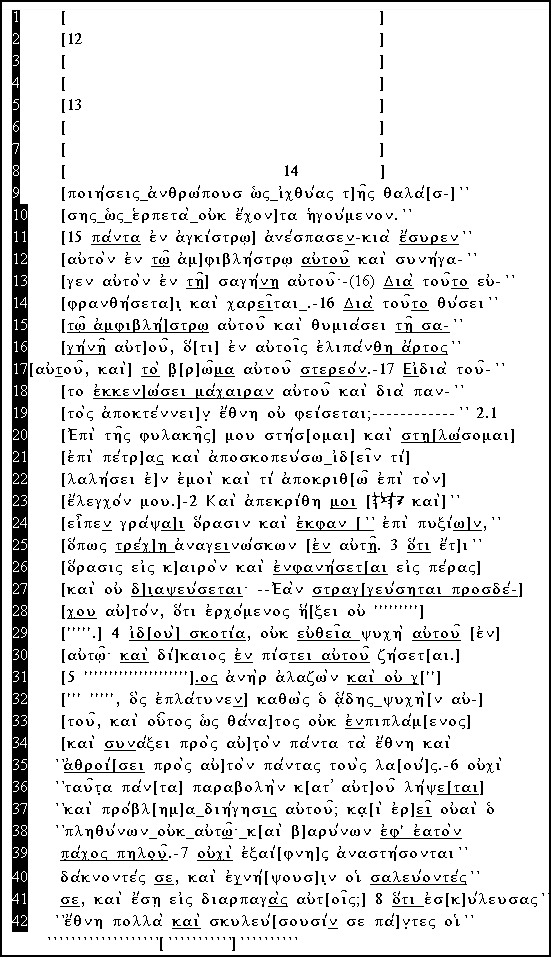 1 [ ]
2 [12
3 [ ]
4 [ ]
5 [13 ]
6 [ ]
7 [ ]
8 [ 14 ]
9 [ποιήσεις_ἀνθρώπουσ ὡς_ἰχθύας τ]ῆς θαλά[σ-] ''
10 [σης_ὡς_ἑρπετὰ_οὐκ ἔχον]τα ἡγούμενον. ''
11 [15 πάντα ἐν ἀγκίστρῳ] ἀνέσπασεν-κιὰ ἔσυρεν ''
12 [αὐτὸν ἐν τῶ ἀμ]φιβλήστρῳ αὐτοῦ καὶ συνήγα-''
13 [γεν αὐτὸν ἐν τῇ] σαγήνῃ αὐτοῦ·-(16) Διὰ τοῦτο εὐ-''
14 [φρανθήσετα]ι καὶ χαρεῖται_.-16 Διὰ τοῦτο θύσει ''
15 [τῶ ἀμφιβλή]στρῳ αὐτοῦ καὶ θυμιάσει τῇ σα-''
16 [γήνῇ αὐτ]οῦ, ὅ[τι] ἐν αὐτοῖς ἐλιπάνθη ἄρτος ''
17 [αὐτοῦ, καὶ] τὸ β[ρ]ῶμα αὐτοῦ στερεόν.-17 Εἰδιὰ τοῦ-''
18 [το ἐκκεν]ώσει μάχαιραν αὐτοῦ καὶ διὰ παν-''
19 [τὸς ἀποκτέννει]ν ἔθνη οὐ φείσεται;------------ '' 2.1
20 [Ἐπὶ τῆς φυλακῆς] μου στήσ[ομαι] καὶ στη[λώσομαι]
21 [ἐπὶ πέτρ]ας καὶ ἀποσκοπεύσω_ἰδ[εῖν τί]
22 [λαλήσει ἐ]ν ἐμοὶ καὶ τί ἀποκριθ[ῶ ἐπὶ τὸν]
23 [ἔλεγχόν μου.]-2 Καὶ ἀπεκρίθη μοι [ καὶ]''
24 [εἶπεν γράψα]ι ὅρασιν καὶ ἐκφαν ['' ἐπὶ πυξίω]ν,''
25 [ὅπως τρέχ]ῃ ἀναγεινώσκων [ἐν αὐτῇ. 3 ὅτι ἔτ]ι''
26 [ὅρασις εἰς κ]αιρὸν καὶ ἐνφανήσετ[αι εἰς πέρας]
27 [καὶ οὐ δ]ιαψεύσεται· --Ἐὰν στραγ[γεύσηται προσδέ-]
28 [χου αὐ]τόν, ὅτι ἐρχόμενος ἥ[ξει οὐ ''''''''']
29 ['''''.] 4 ἰδ[οὺ] σκοτία, οὐκ εὐθεῖα ψυχὴ αὐτοῦ [ἐν]
30 [αὐτῷ· καὶ δί]καιος ἐν πίστει αὐτοῦ ζήσετ[αι.]
31 [5 ''''''''''''''''''''].ος ἀνὴρ ἀλαζὼν καὶ οὐ χ['']
32 [''' ''''', ὃς ἐπλάτυνεν] καθὼς ὁ ᾅδης_ψυχὴ[ν αὐ-]
33 [τοῦ, καὶ οὗτος ὡς θάνα]τος οὐκ ἐνπιπλάμ[ενος]
34 [καὶ συνάξει πρὸς αὐ]τὸν πάντα τὰ ἔθνη καὶ
35 ''ἀθροί[σει πρὸς αὐ]τὸν πάντας τοὺς λα[ού]ς.-6 οὐχὶ
36 ''ταῦτα πάν[τα] παραβολὴν κ[ατ' αὐτ]οῦ λήψε[ται]
37 ''καὶ πρόβλ[ημ]α_διήγησις αὐτοῦ; κα[ὶ ἐρ]εῖ οὐαὶ ὁ
38 ''πληθύνων_οὐκ_αὐτῷ·_κ[αὶ β]αρύνων ἐφ' ἑατὸν
39 πάχος πηλοῦ.-7 οὐχὶ ἐξαί[φνη]ς ἀναστήσονται
40 δάκνοντές σε, καὶ ἐγνή[ψουσ]ιν οἱ σαλεύοντές
41 σε, καὶ ἔσῃ εἰς διαρπαγὰς αὐτ[οῖς;] 8 ὅτι ἐσ[κ]ύλευσας''
42 ''ἔθνη πολλὰ καὶ σκυλεύ[σουσίν σε πά]ντες οἱ''
''''''''''''''''''''[''''''''''']''''''''''